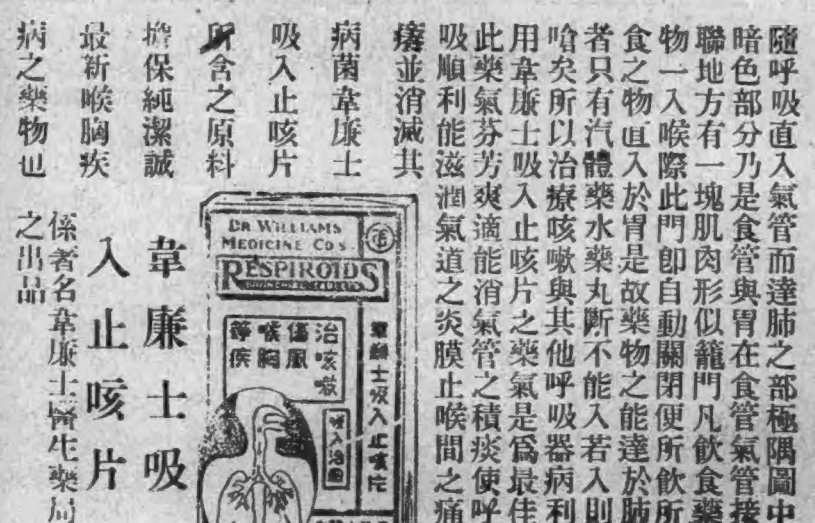 隨呼吸直入氣管而達肺之部極隅圖中
暗色部分乃是食管與胃在食管氣管接
聯地方有一塊肌肉形似籠門凡飲食藥
物一入喉際此門卽自動關閉便所飲所
食之物直入於胃是故藥物之能達於肺
者只有汽體藥水藥丸斷不能入若入則
嗆矣所以治療咳嗽與其他呼吸器病利
用韋廉士吸入止咳片之藥氣是爲最佳
此藥氣芬芳爽適能消氣管之積痰使呼
吸順利能滋潤氣道之炎膜止喉間之痛
癢並消滅其
病菌韋廉士
吸入止咳片
所含之原料
擔保純潔誠
最新喉胸疾
病之藥物也
DR WILLIAMS
MEDICINE CO'S
RESPIROIDS
韋廉士吸入止咳片
治咳嗽
傷風
喉胸
等疾
吸入治
韋廉士吸
入止咳片
係著名韋廉士醫生藥局
之出品